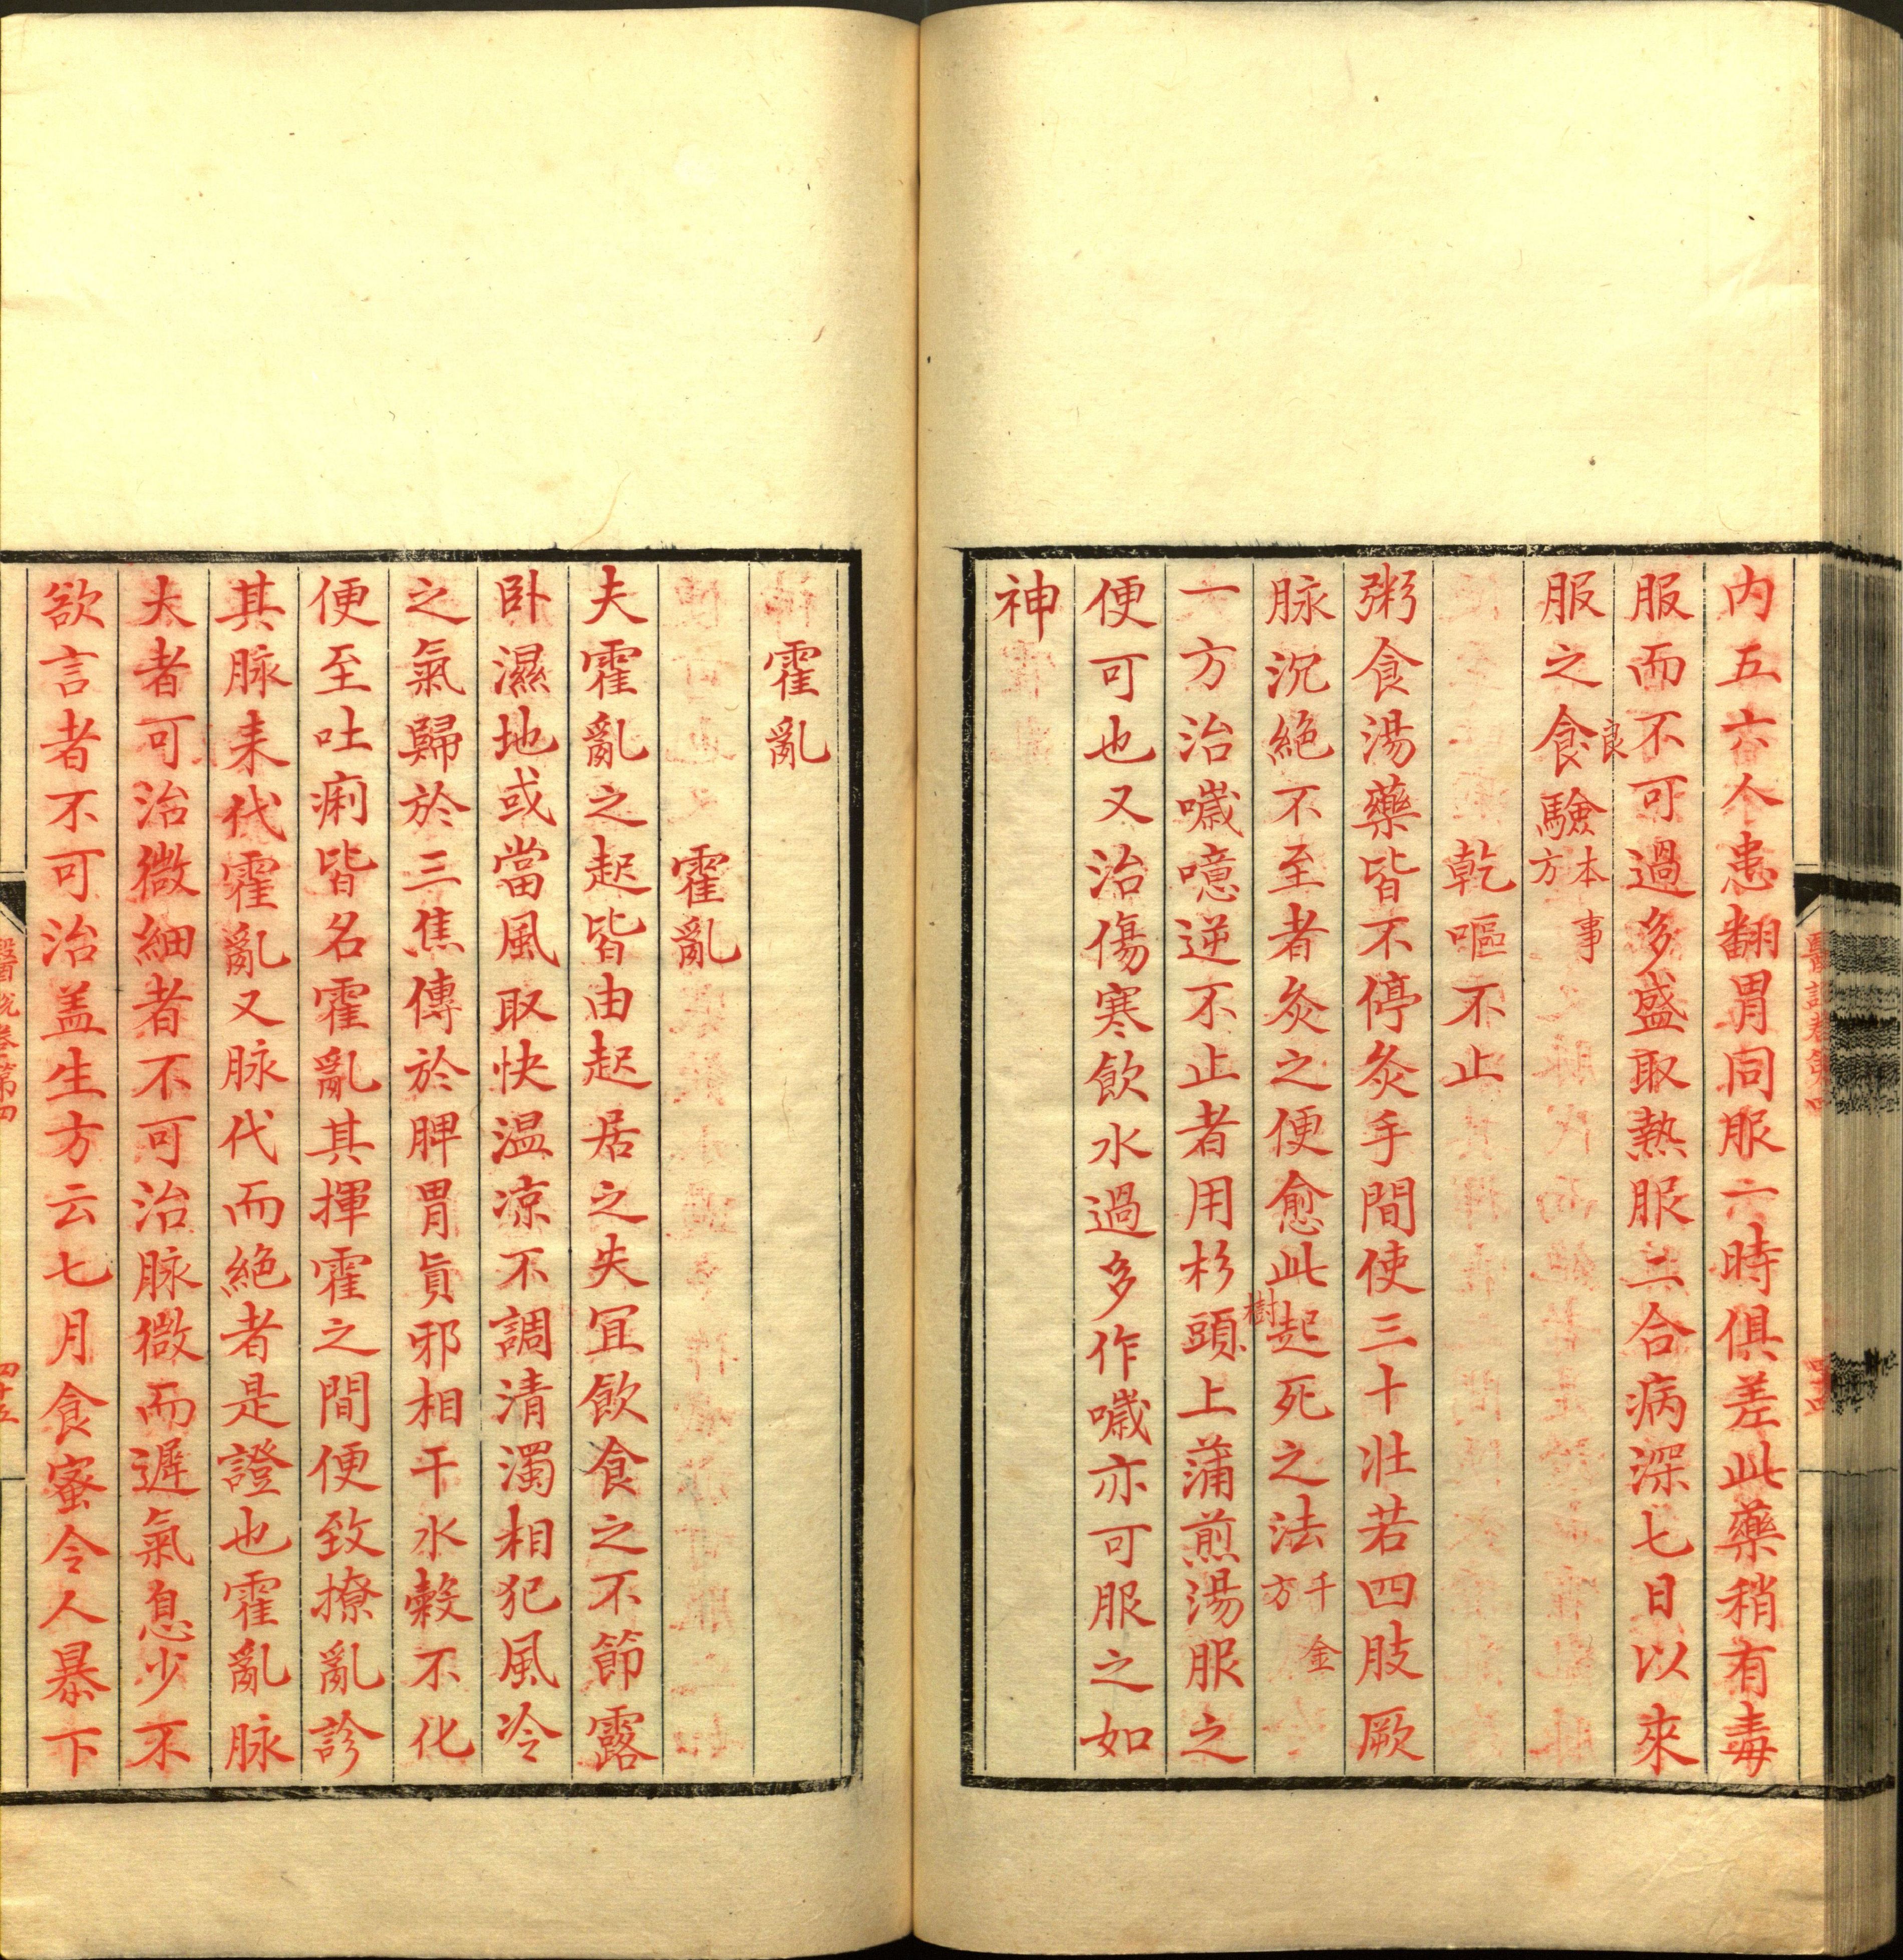 內五六人患翻胃同服六時俱差此藥稍有毒
服而不可過多盛取熱服二合病深七日以來
服之食驗本事方
良
乾嘔不止
粥食湯藥皆不停灸手間使三十壯若四肢厥
脉沉絶不至者灸之便愈此起死之法千金方
一方治噦噫逆不止者用杉頭上蒲煎湯服之
樹
便可也又治傷寒飲水過多作噦亦可服之如
神
霍亂
霍亂
夫霍亂之起皆由起居之失冝飲食之不節露
卧濕地或當風取快温凉不調清濁相犯風冷
之氣歸於三焦傳於脾胃眞邪相干水糓不化
便至吐痢皆名霍亂其揮霍之間便致撩亂診
其脉来代霍亂又脉代而絶者是證也霍亂脉
大者可治微細者不可治脉微而遲氣息少不
欲言者不可治盖生方云七月食蜜令人暴下
醫說卷第四
四十五